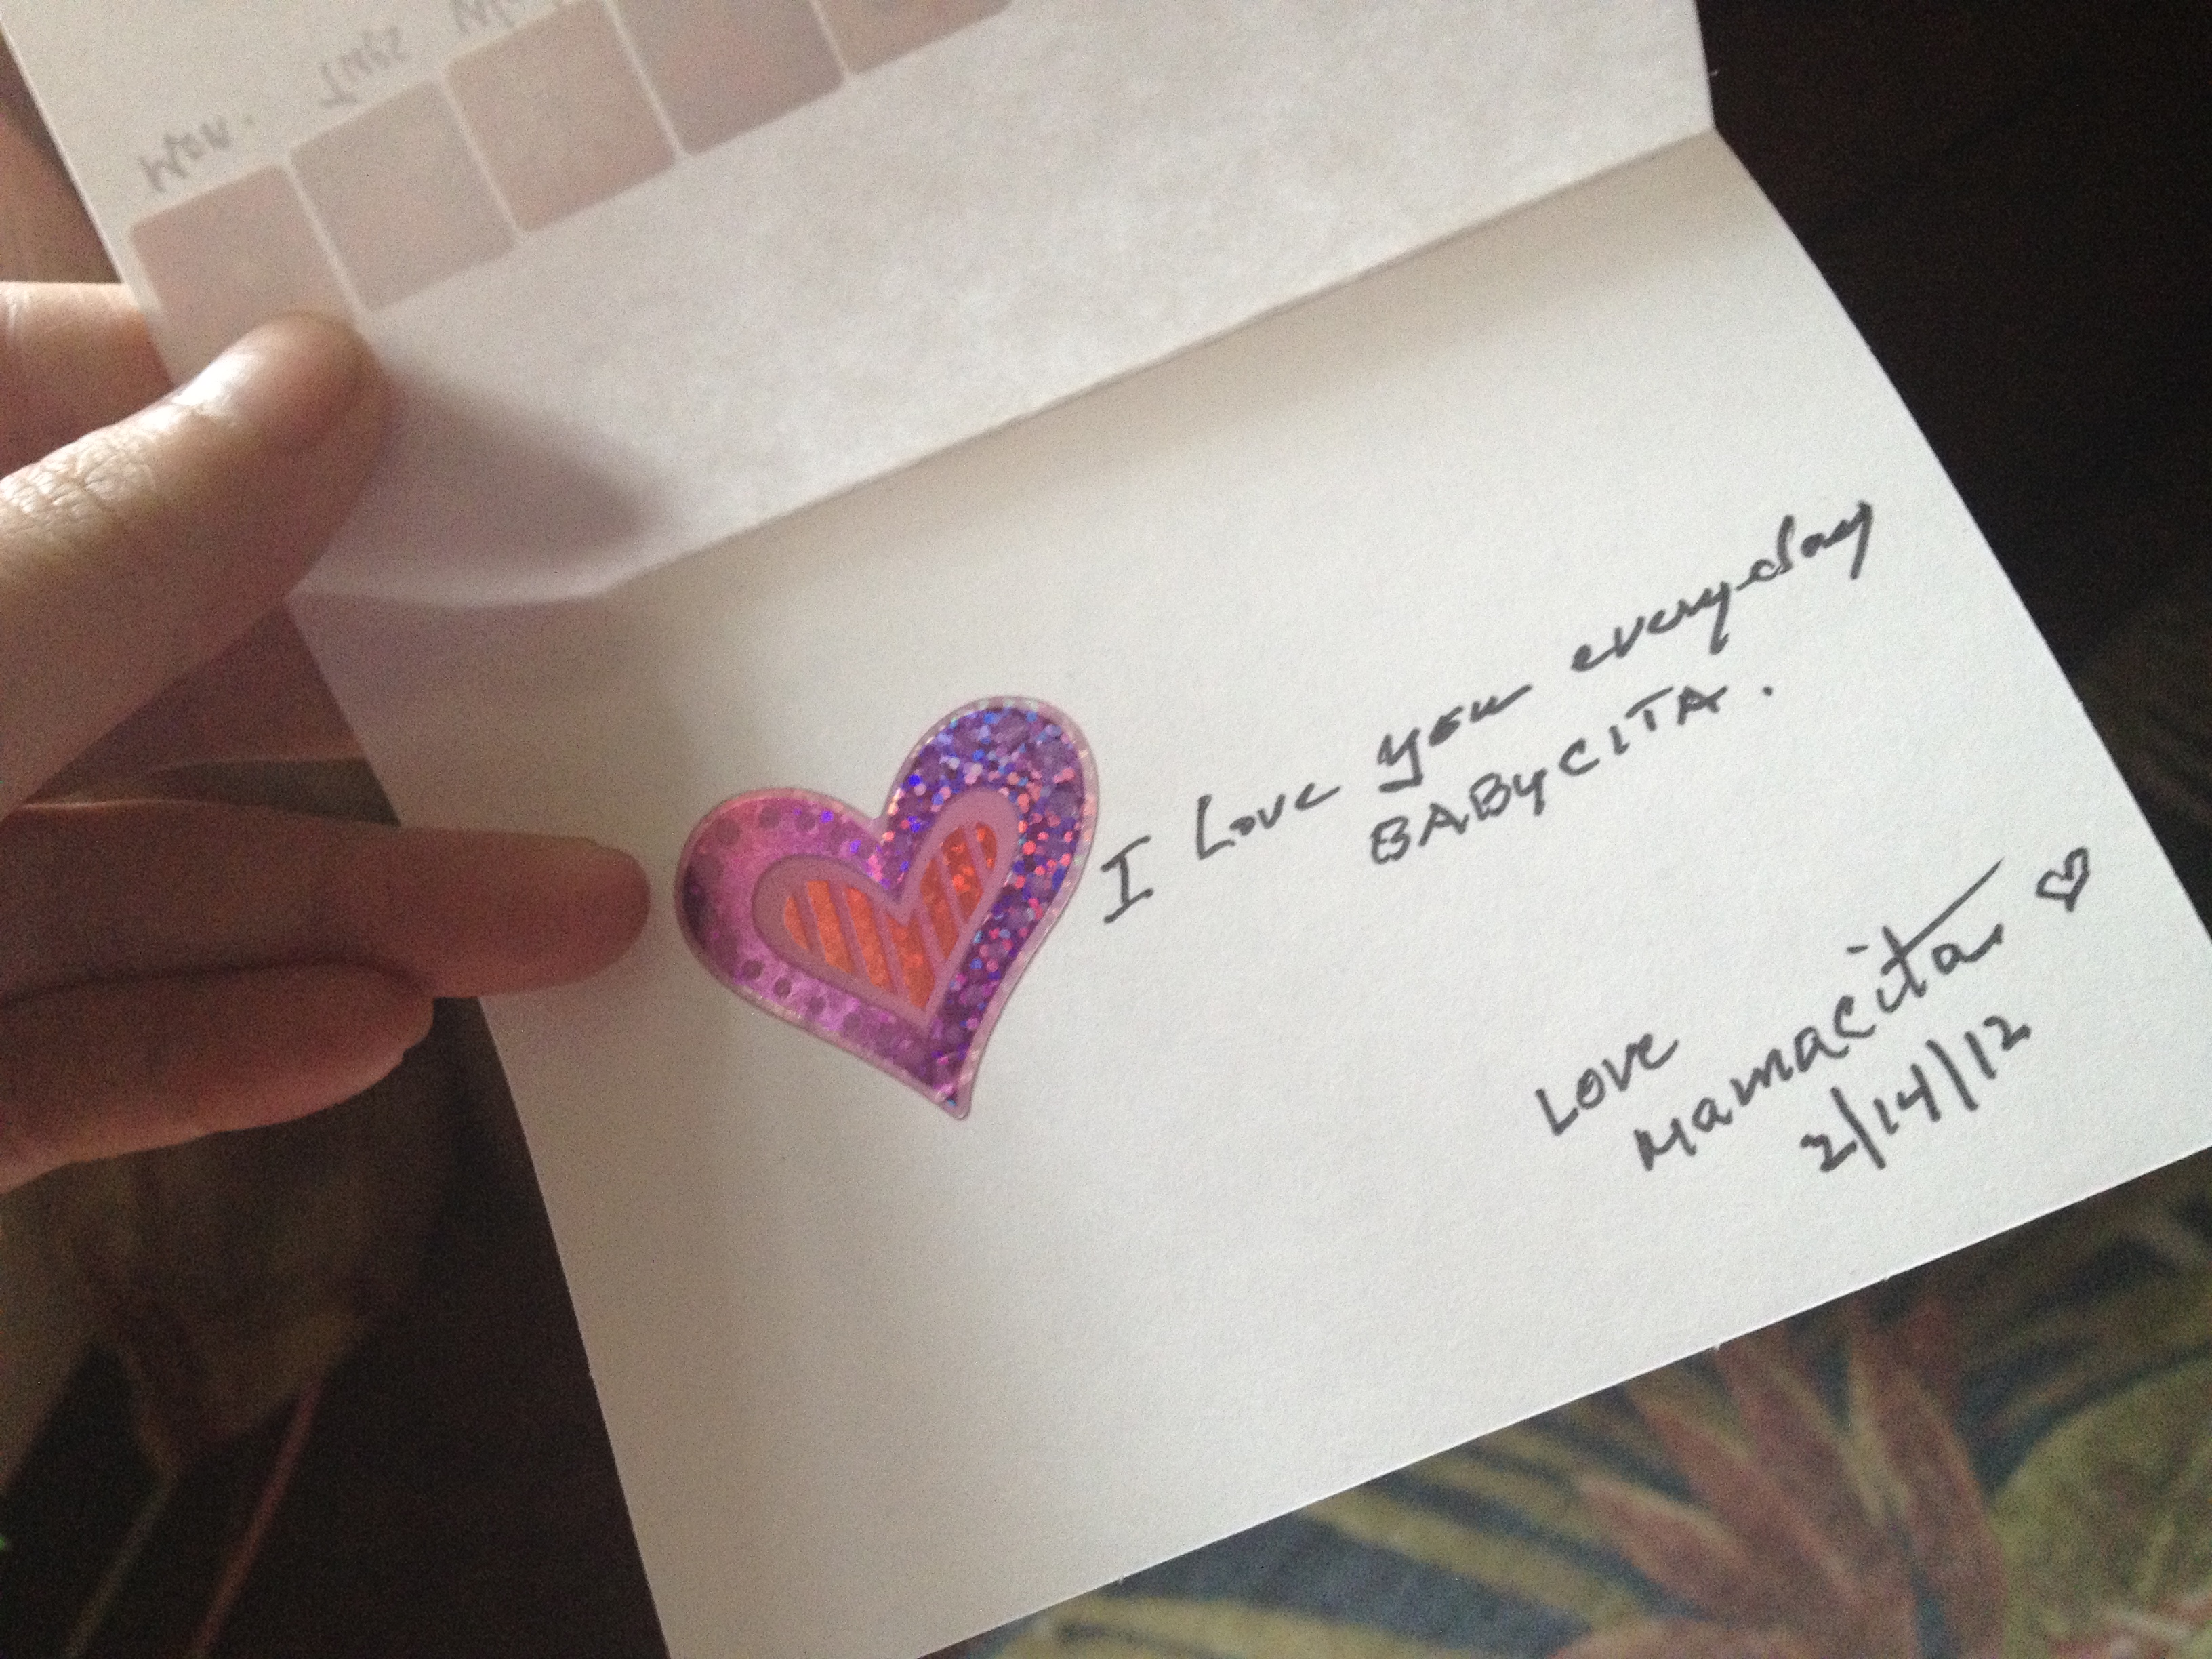 Mon.
Tues
I Love you every-day
BABYCITA.
Love
Mamacita
2/14/12